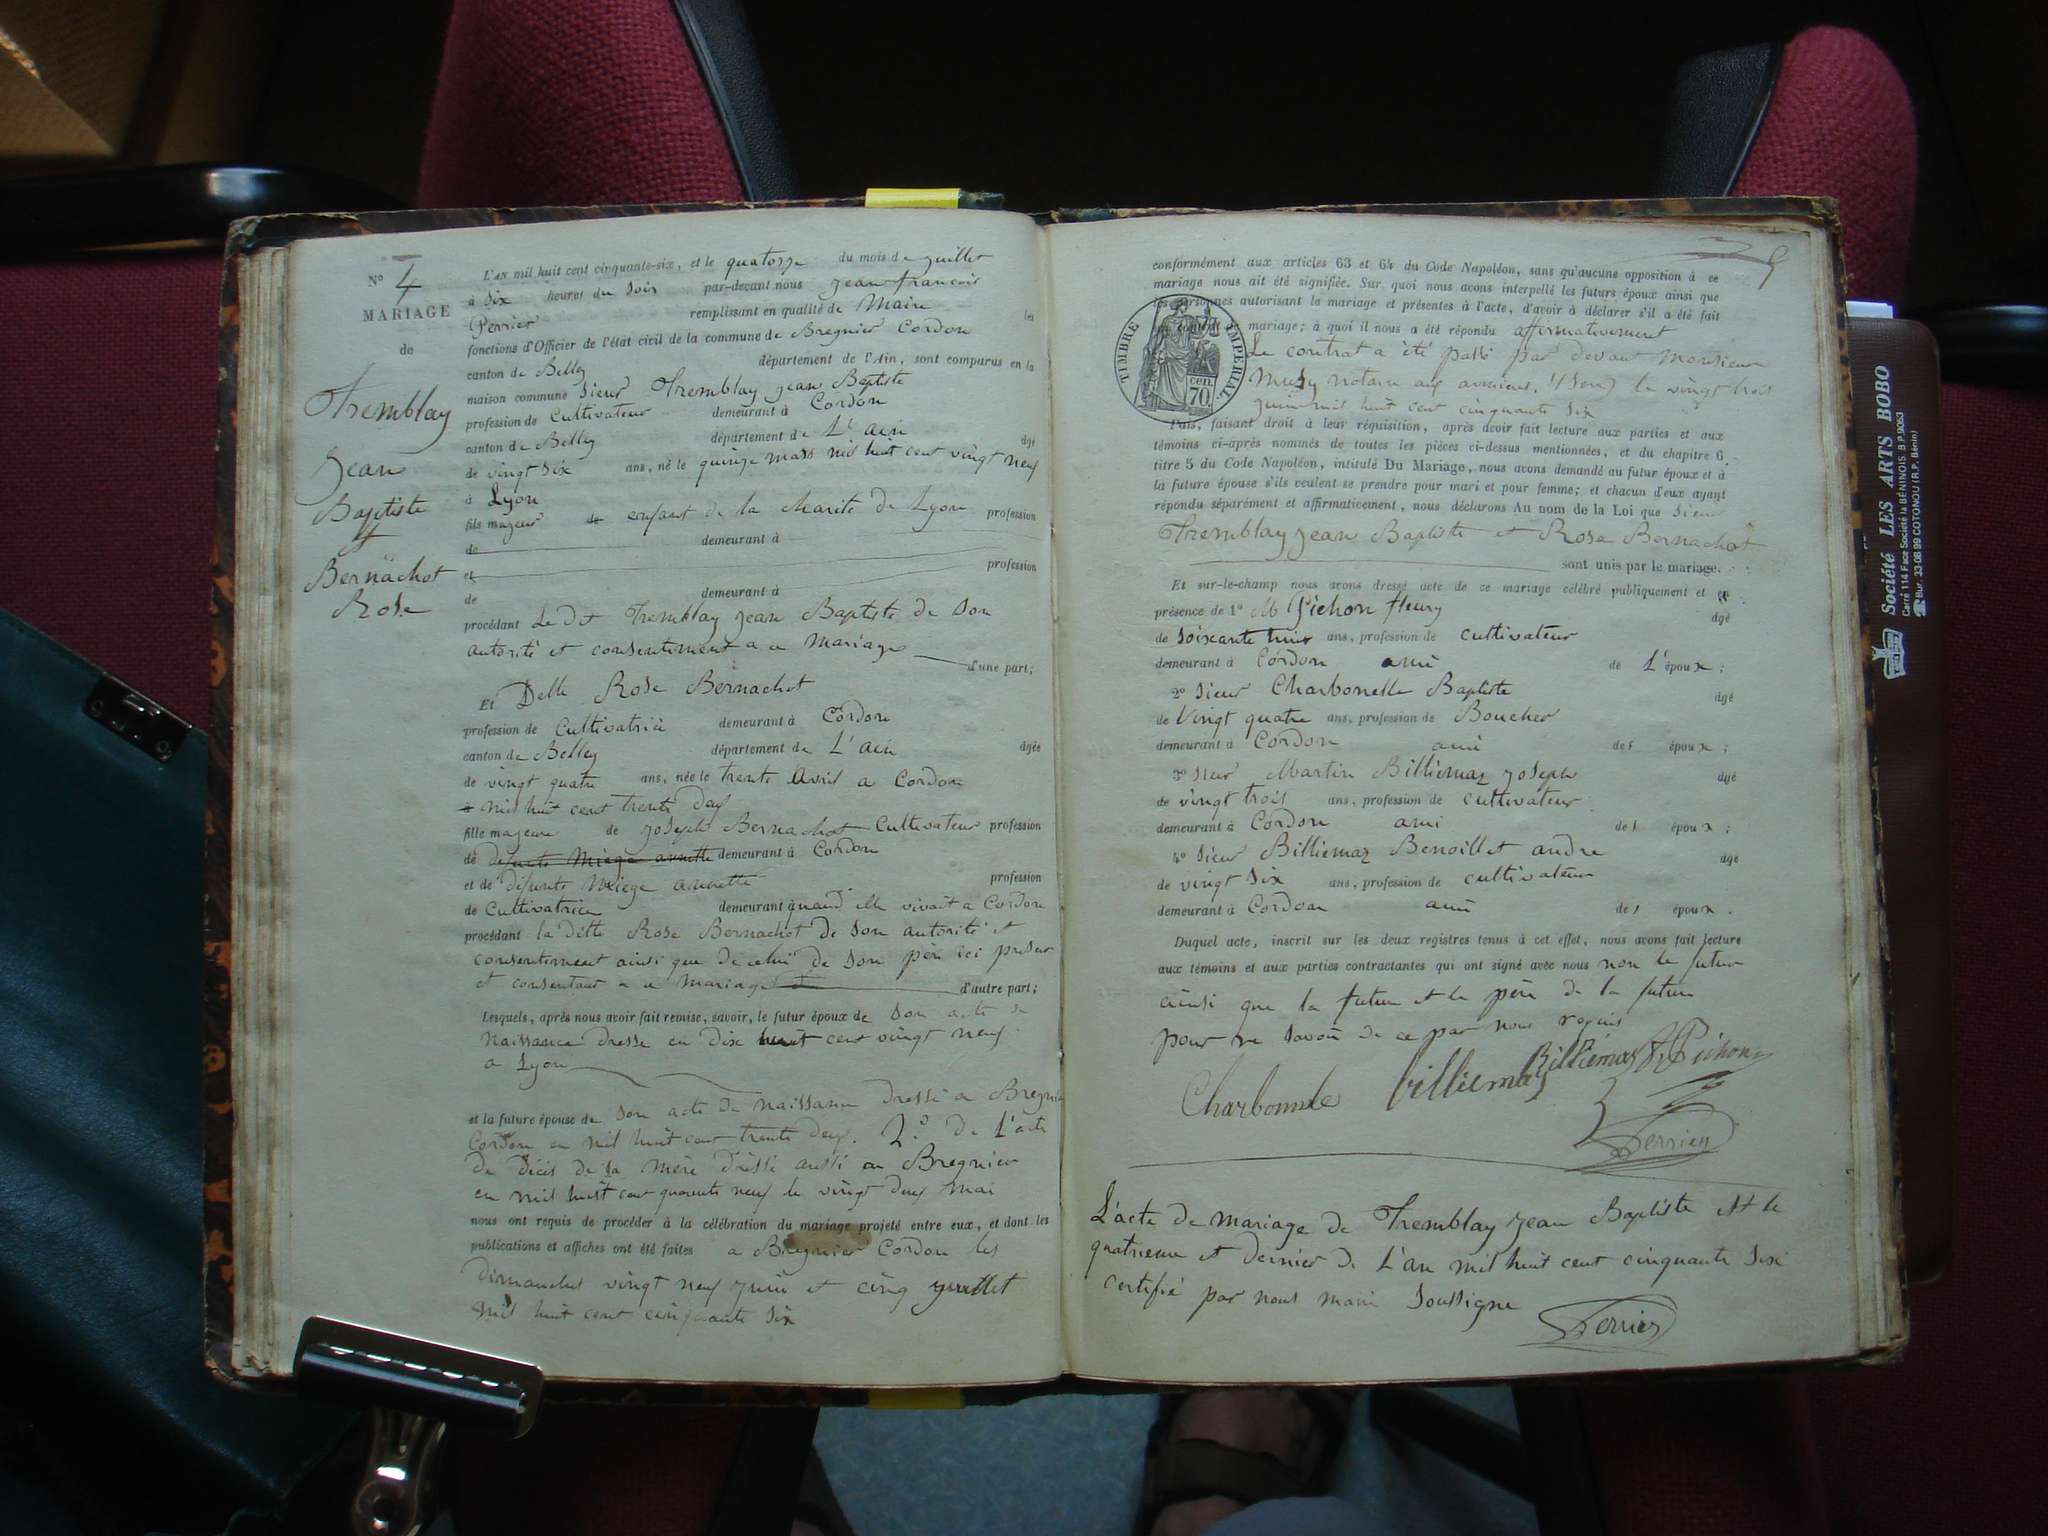 N° 4
MARIAGE
de
Tremblay
Jean
Baptiste
et
Bernachot
Rose
L'AN mil huit cent cinquante-six, et le quatorze du mois de juillet
à six heures du soir par-devant nous jean francois
Perrier remplissant en qualité de Maire les
fonctions d'Officier de l'état civil de la commune de Bregnier Cordon
canton de Belley département de l'Ain, sont comparus en la
maison commune sieur Tremblay jean Baptiste
profession de Cultivateur demeurant à Cordon
canton de Belley département de L'ain âgé
de vingt six ans, né le quinze mars mil huit cent vingt neuf
à Lyon
fils majeur de enfant de la charité de Lyon profession
de demeurant à
et profession
de demeurant à
procédant Le dit Tremblay jean Baptiste de son
autorité et consentement a ce mariage d'une part;
Et Delle Rose Bernachot
profession de Cultivatrice demeurant à Cordon
canton de Belley département de L'ain âgée
de vingt quatre ans, née le trente avril a Cordon
mil huit cent trente deux
fille majeure de joseph Bernachot Cultivateur profession
de defunte Miege annette demeurant à Cordon
et de défunte Miege annette profession
de Cultivatrice demeurant à quand elle vivait a Cordon
procédant la ditte Rose Bernachot de son autorité et
consentement ainsi que de celui de son père ici présent
et consentant a ce mariage d'autre part;
Lesquels, après nous avoir fait remise, savoir, le futur époux de son acte de
naissance dressé en dix huit cent vingt neuf
a Lyon
et la future épouse de son acte de naissance dressé a Bregnier
Cordon en mil huit cent trente deux. 2° de L'acte
de décès de sa mère dressé aussi a Bregnier
en mil huit cent quarante neuf le vingt deux mai
nous ont requis de procéder à la célébration du mariage projeté entre eux, et dont les
publications et affiches ont été faites a Bregnier Cordon les
dimanches vingt neuf juin et cinq juillet
mil huit cent cinquante six
conformément aux articles 63 et 64 du Code Napoléon, sans qu'aucune opposition à ce
mariage nous ait été signifiée. Sur quoi nous avons interpellé les futurs époux ainsi que
les personnes autorisant le mariage et présentes à l'acte, d'avoir à déclarer s'il a été fait
un contrat de mariage; à quoi il nous a été répondu affirmativement
Le contrat a été passé par devant monsieur
notaire aux avenieres (Isere) le vingt trois
juin mil huit cent cinquante six
TIMBRE IMPERIAL
70 cen.
Puis, faisant droit à leur réquisition, après avoir fait lecture aux parties et aux
témoins ci-après nommés de toutes les pièces ci-dessus mentionnées, et du chapitre 6,
titre 5 du Code Napoléon, intitulé Du Mariage, nous avons demandé au futur époux et à
la future épouse s'ils veulent se prendre pour mari et pour femme; et chacun d'eux ayant
répondu séparément et affirmativement, nous déclarons Au nom de la Loi que sieur
Tremblay jean Baptiste et Rose Bernachot
sont unis par le mariage.
Et sur-le-champ nous avons dressé acte de ce mariage célébré publiquement et en
présence de 1° M Pichon fleury âgé
de soixante trois ans, profession de cultivateur
demeurant à Cordon ami de L'époux;
2° sieur Charbonelle Baptiste âgé
de Vingt quatre ans, profession de Boucher
demeurant à Cordon ami des époux;
3° sieur Martin Billiemaz joseph âgé
de vingt trois ans, profession de cultivateur
demeurant à Cordon ami des époux;
4° sieur Billiemaz Benoillet andre âgé
de vingt six ans, profession de cultivateur
demeurant à Cordon ami des époux.
Duquel acte, inscrit sur les deux registres tenus à cet effet, nous avons fait lecture
aux témoins et aux parties contractantes qui ont signé avec nous non le futur
ainsi que la future et le père de la future
pour ne savoir de ce par nous requis
Charbonnele billiemaz Billiemaz Pichon
Perrier
L'acte de mariage de Tremblay jean Baptiste est le
quatrieme et dernier de L'an mil huit cent cinquante six
certifié par nous maire soussigne
Perrier
Société LES ARTS BOBO
Carré 114 Face Société la BÉNINOIS B.P. 9063
Bur. 33-06 99 COTONOU (R.P. Bénin)